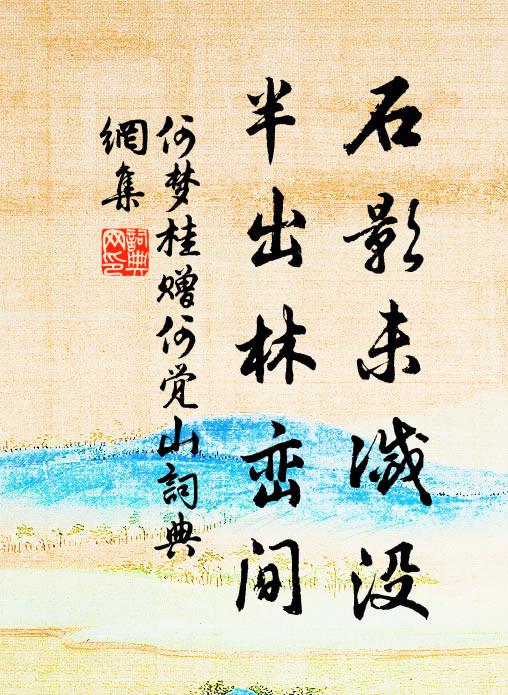 石影未灭没
半出林峦间
何梦桂赠何觉山詞典
網集
詞典
网印